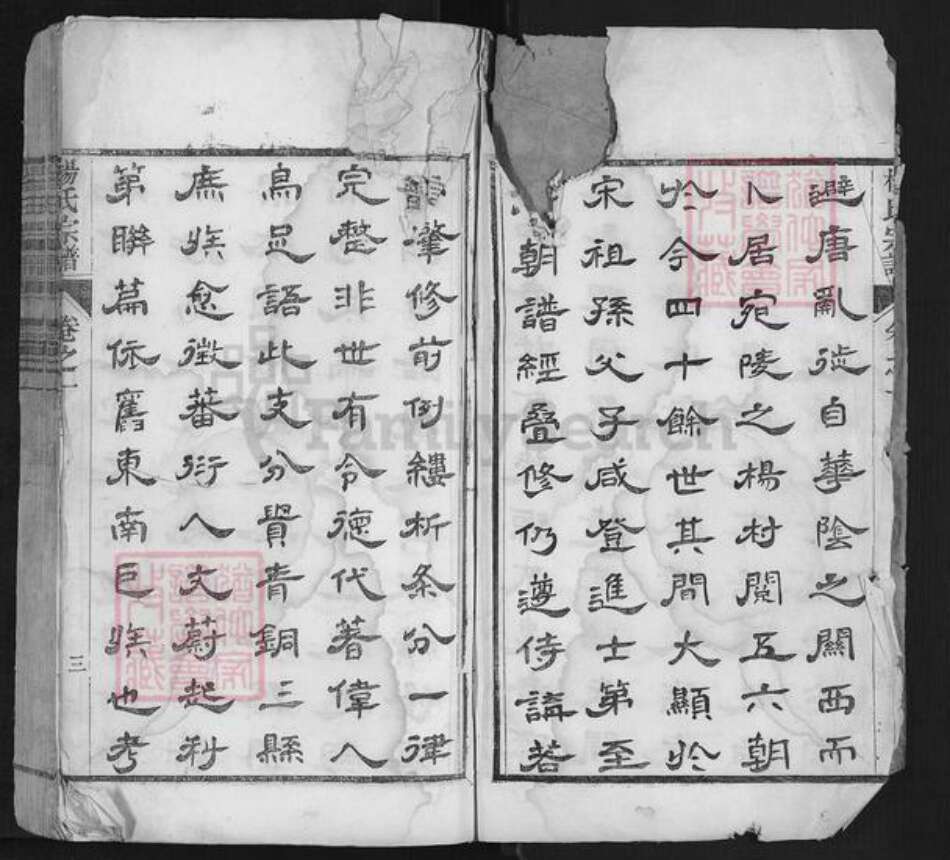 避唐亂徙自華陰之關西而
卜居宛陵之楊村閱五六朝
於今四十餘世其間大顯於
宋祖孫父子咸登進士第至
朝譜經疊修仍遵侍講若
肇修前例縷析条分一律
完整非世有令德代著偉人
烏足語此支分貴青銅三縣
族愈徵蕃衍人文蔚起科
第聯篇依舊東南巨族也考
楊氏宗譜
卷之一
三
FamilySearch